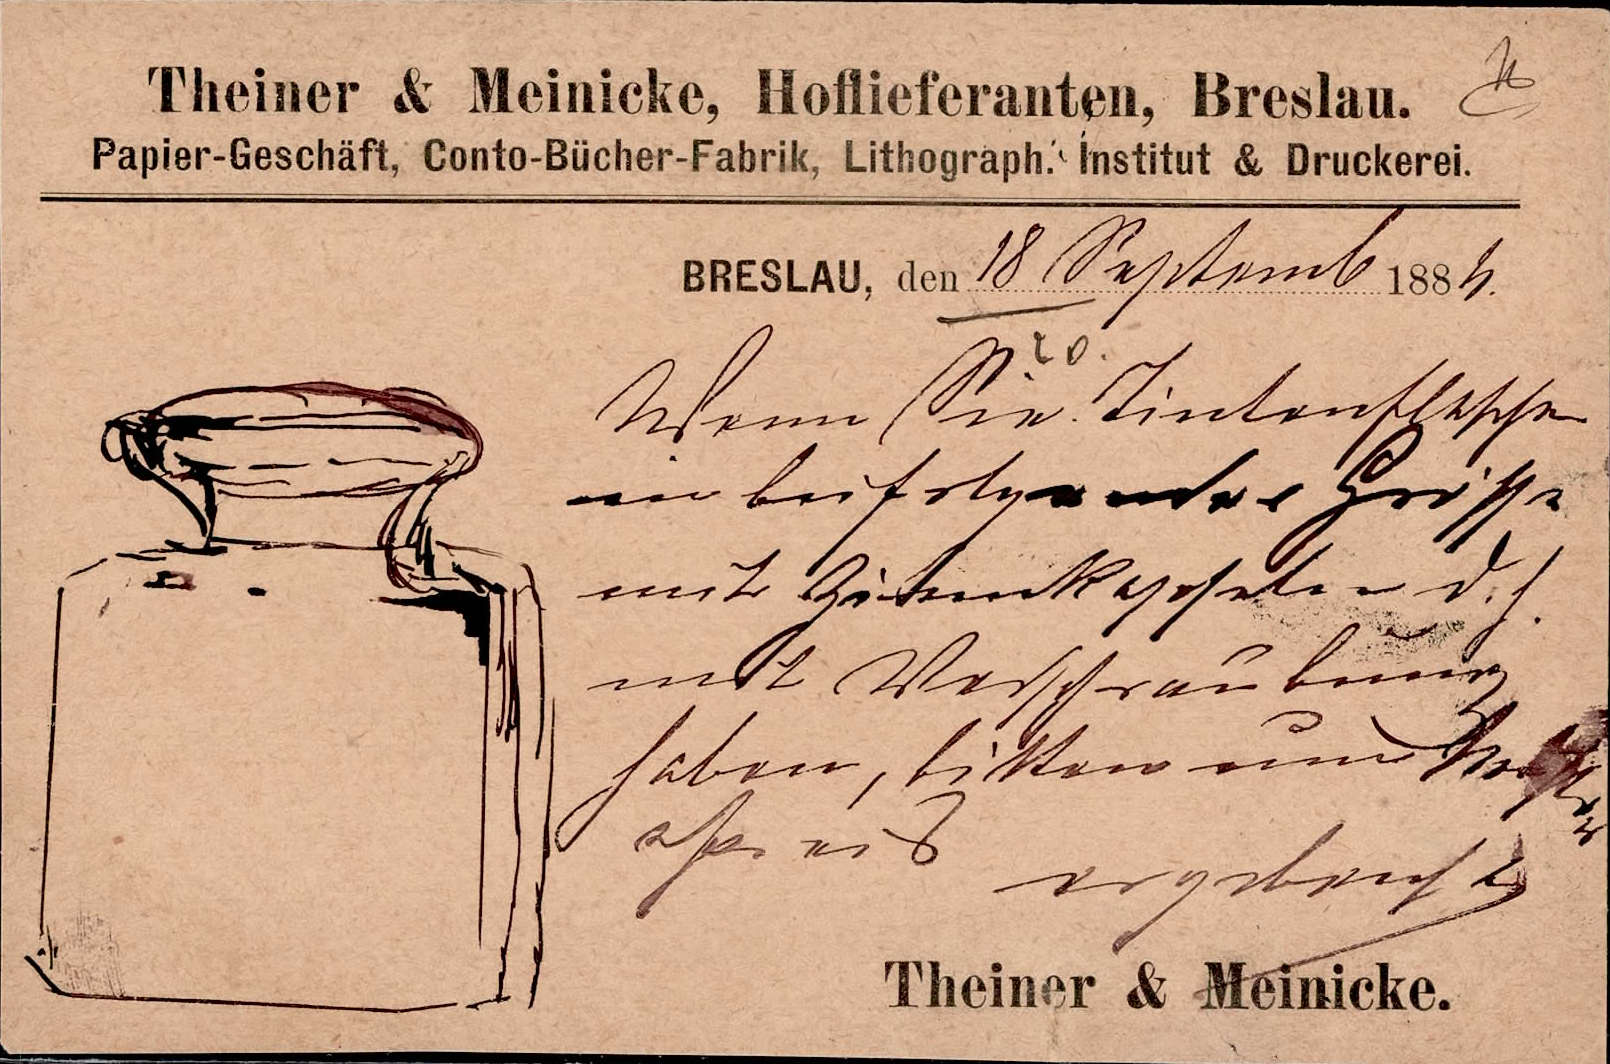 Theiner & Meinicke, Hoflieferanten, Breslau.
Papier-Geschäft, Conto-Bücher-Fabrik, Lithograph. Institut & Druckerei.
BRESLAU, den 18 Septemb 1884.
20.
Wenn Sie Tintenflasche
in beifolgender Größe
mit Zinnkapseln d. h.
mit Verschraubung
haben, bitten um
preis
ergebenst
Theiner & Meinicke.